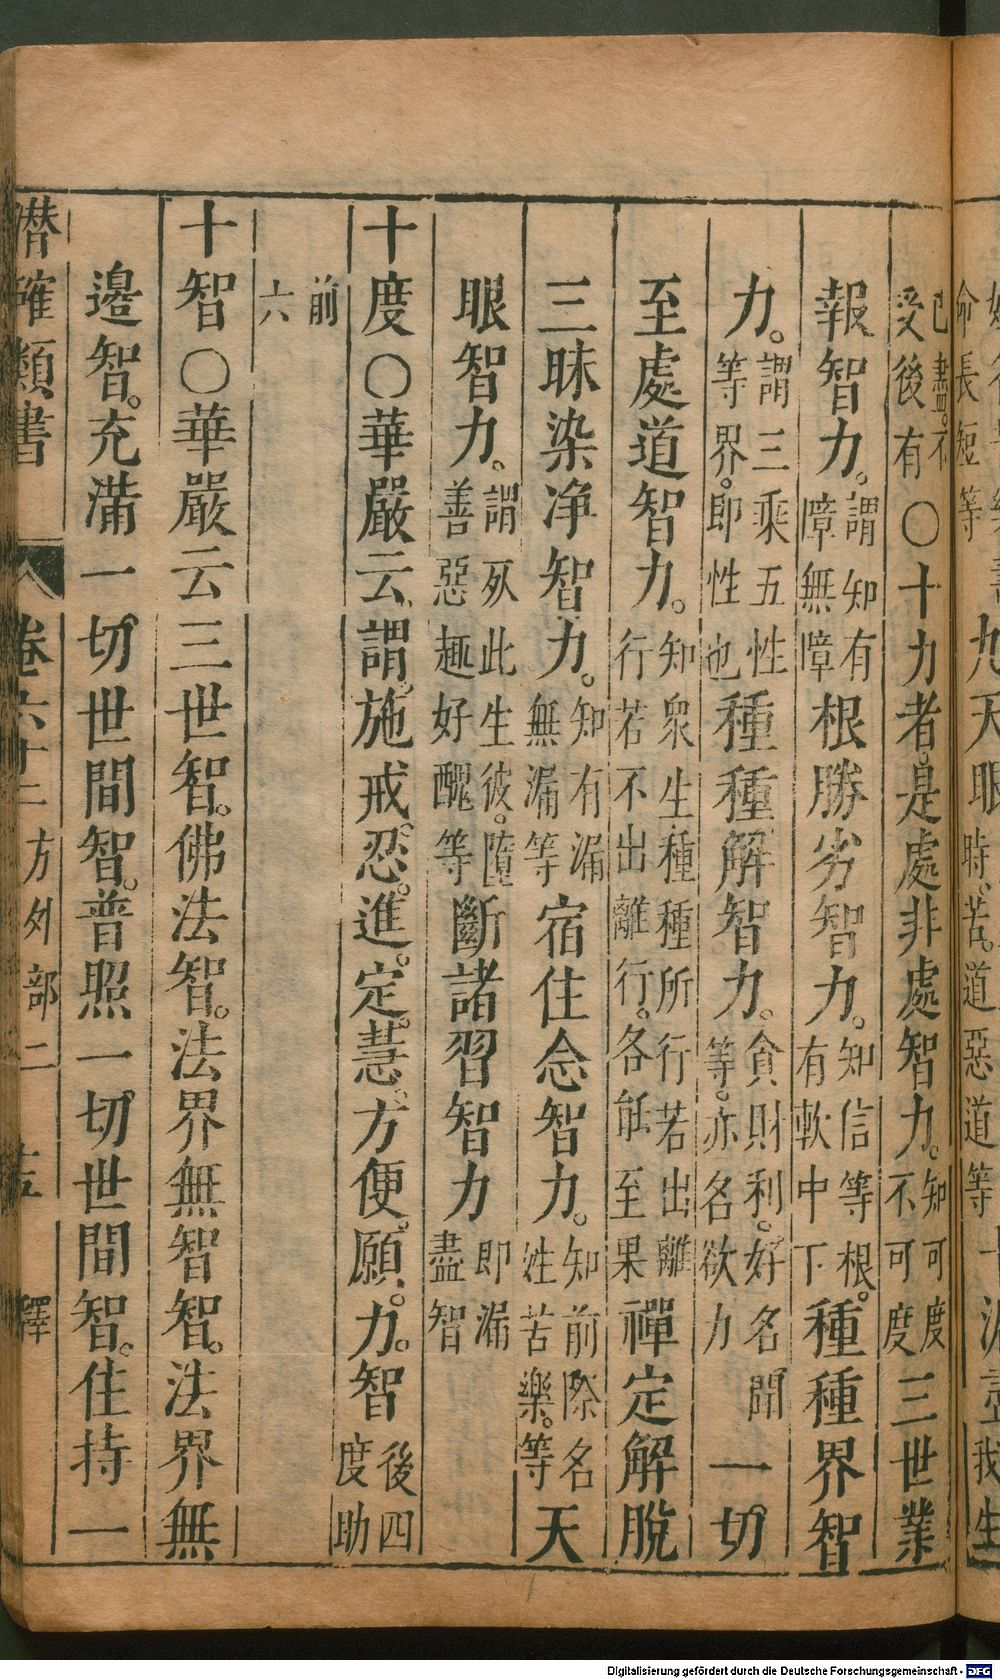 命長短等 九天眼 時苦道惡道等 十漏盡我生
已盡不受後有〇十力者是處非處智力知可度不可度三世業
報智力謂知有障無障根勝劣智力知信等根有軟中下種種界智
力謂三乘五性等界即性也種種解智力貪財利好名聞等亦名欲力一切
至處道智力知眾生種種所行若出離行若不出離行各能至果禪定解脫
三昧染净智力知有漏無漏等宿住念智力知前際名姓苦樂等天
眼智力謂死此生彼墮善惡趣好醜等斷諸習智力即漏盡智
十度〇華嚴云謂施戒忍進定慧方便願力智後四度助
前六
十智〇華嚴云三世智佛法智法界無智智法界無
邊智充滿一切世間智普照一切世間智住持一
潛確類書 卷六十二 方外部二 釋
Digitalisierung gefördert durch die Deutsche Forschungsgemeinschaft - DFG